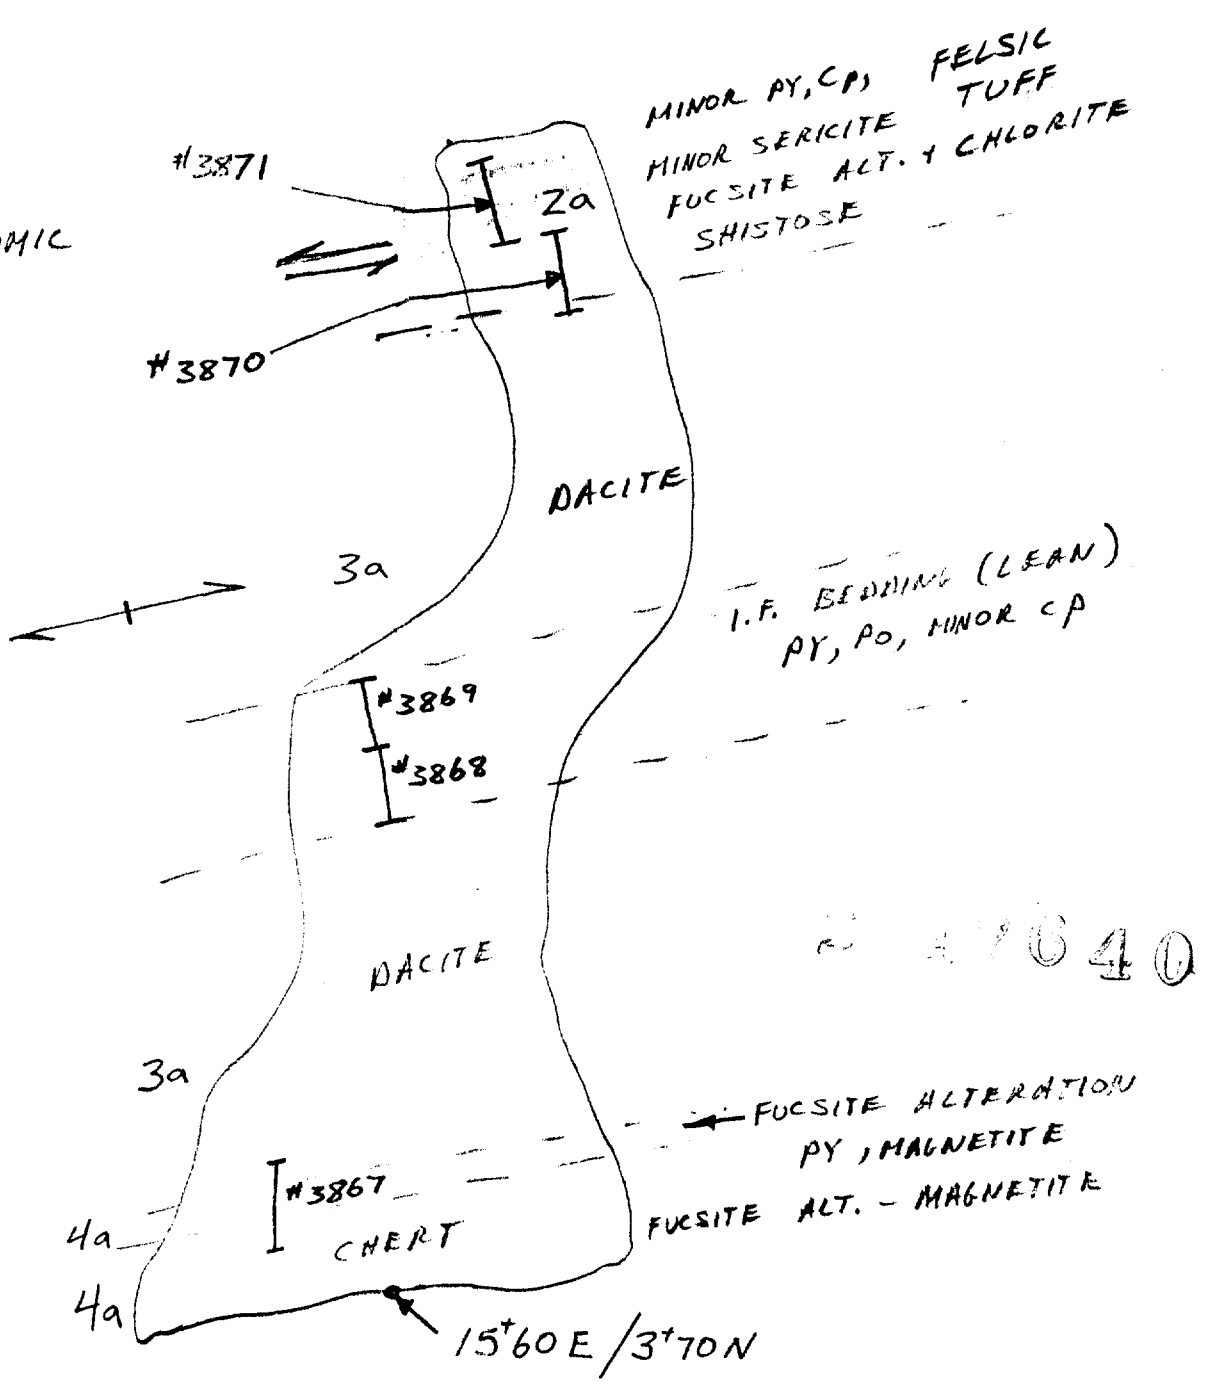 MINOR PY, CP, FELSIC
TUFF
MINOR SERICITE
FUCSITE ALT. + CHLORITE
SHISTOSE
#3871
2a
OMIC
#3870
DACITE
3a
I.F. BEDDING (LEAN)
PY, PO, MINOR CP
#3869
#3868
DACITE
640
3a
FUCSITE ALTERATION
PY, MAGNETITE
#3867
FUCSITE ALT. - MAGNETITE
4a
CHERT
4a
15+60E/3+70N